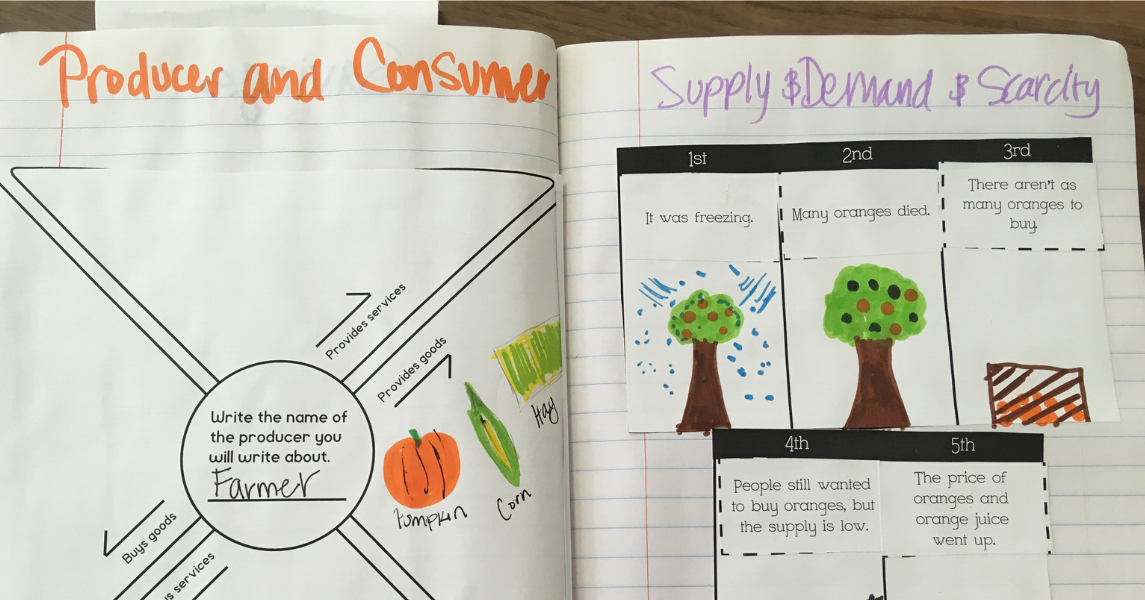 Producer and Consumer
Provides services
Provides goods
Write the name of
the producer you
will write about.
Farmer
Pumpkin
Corn
Hay
Buys goods
services
Supply $ Demand $ Scarcity
1st
2nd
3rd
It was freezing.
Many oranges died.
There aren't as
many oranges to
buy.
4th
5th
People still wanted
to buy oranges, but
the supply is low.
The price of
oranges and
orange juice
went up.